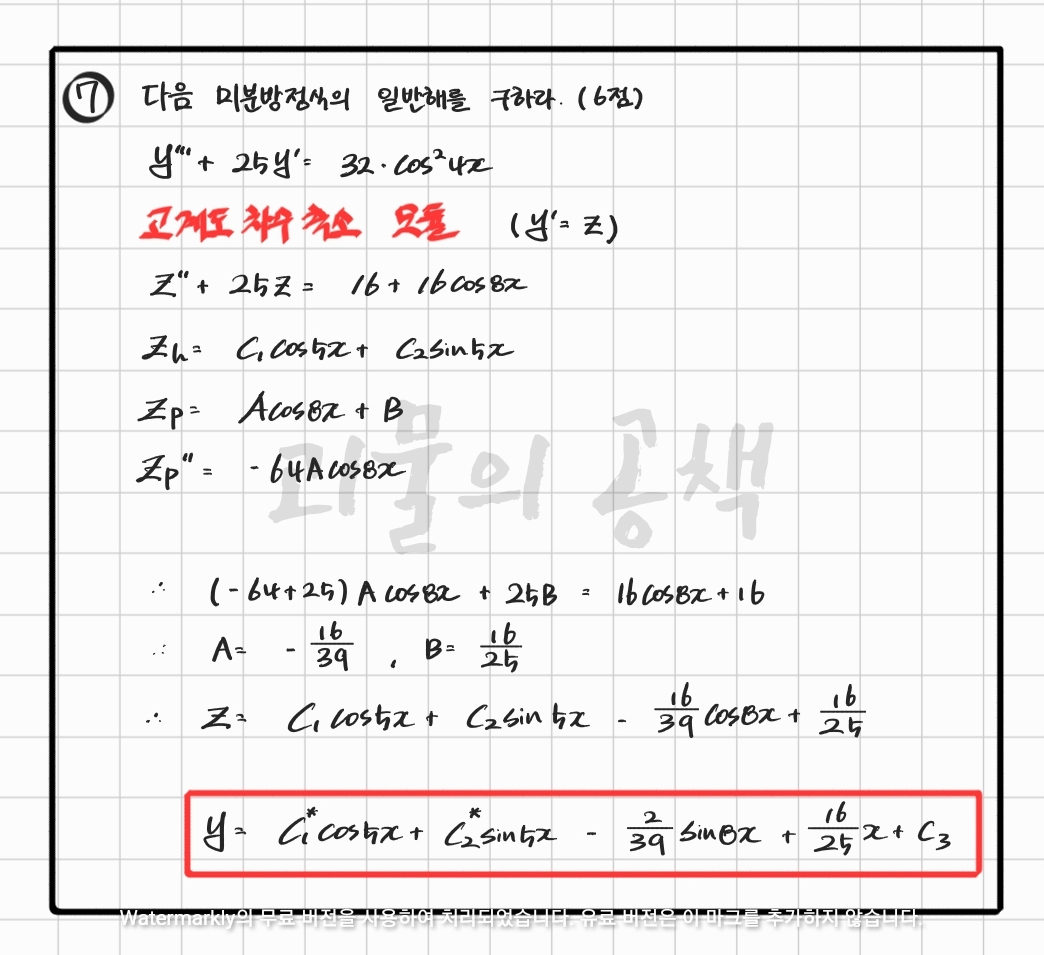 ⑦ 다음 미분방정식의 일반해를 구하라. (6점)
y''' + 25y' = 32·cos²4x
고계도 차수 축소 모듈 (y' = z)
z'' + 25z = 16 + 16cos8x
Zh = C₁cos5x + C₂sin5x
Zp = Acos8x + B
Zp'' = -64Acos8x
괴물의 공책
∴ (-64+25)Acos8x + 25B = 16cos8x + 16
∴ A = -16/39 , B = 16/25
∴ Z = C₁cos5x + C₂sin5x - 16/39 cos8x + 16/25
y = C₁*cos5x + C₂*sin5x - 2/39 sin8x + 16/25 x + C₃
Watermarkly의 무료 버전을 사용하여 처리되었습니다. 유료 버전은 이 마크를 추가하지 않습니다.